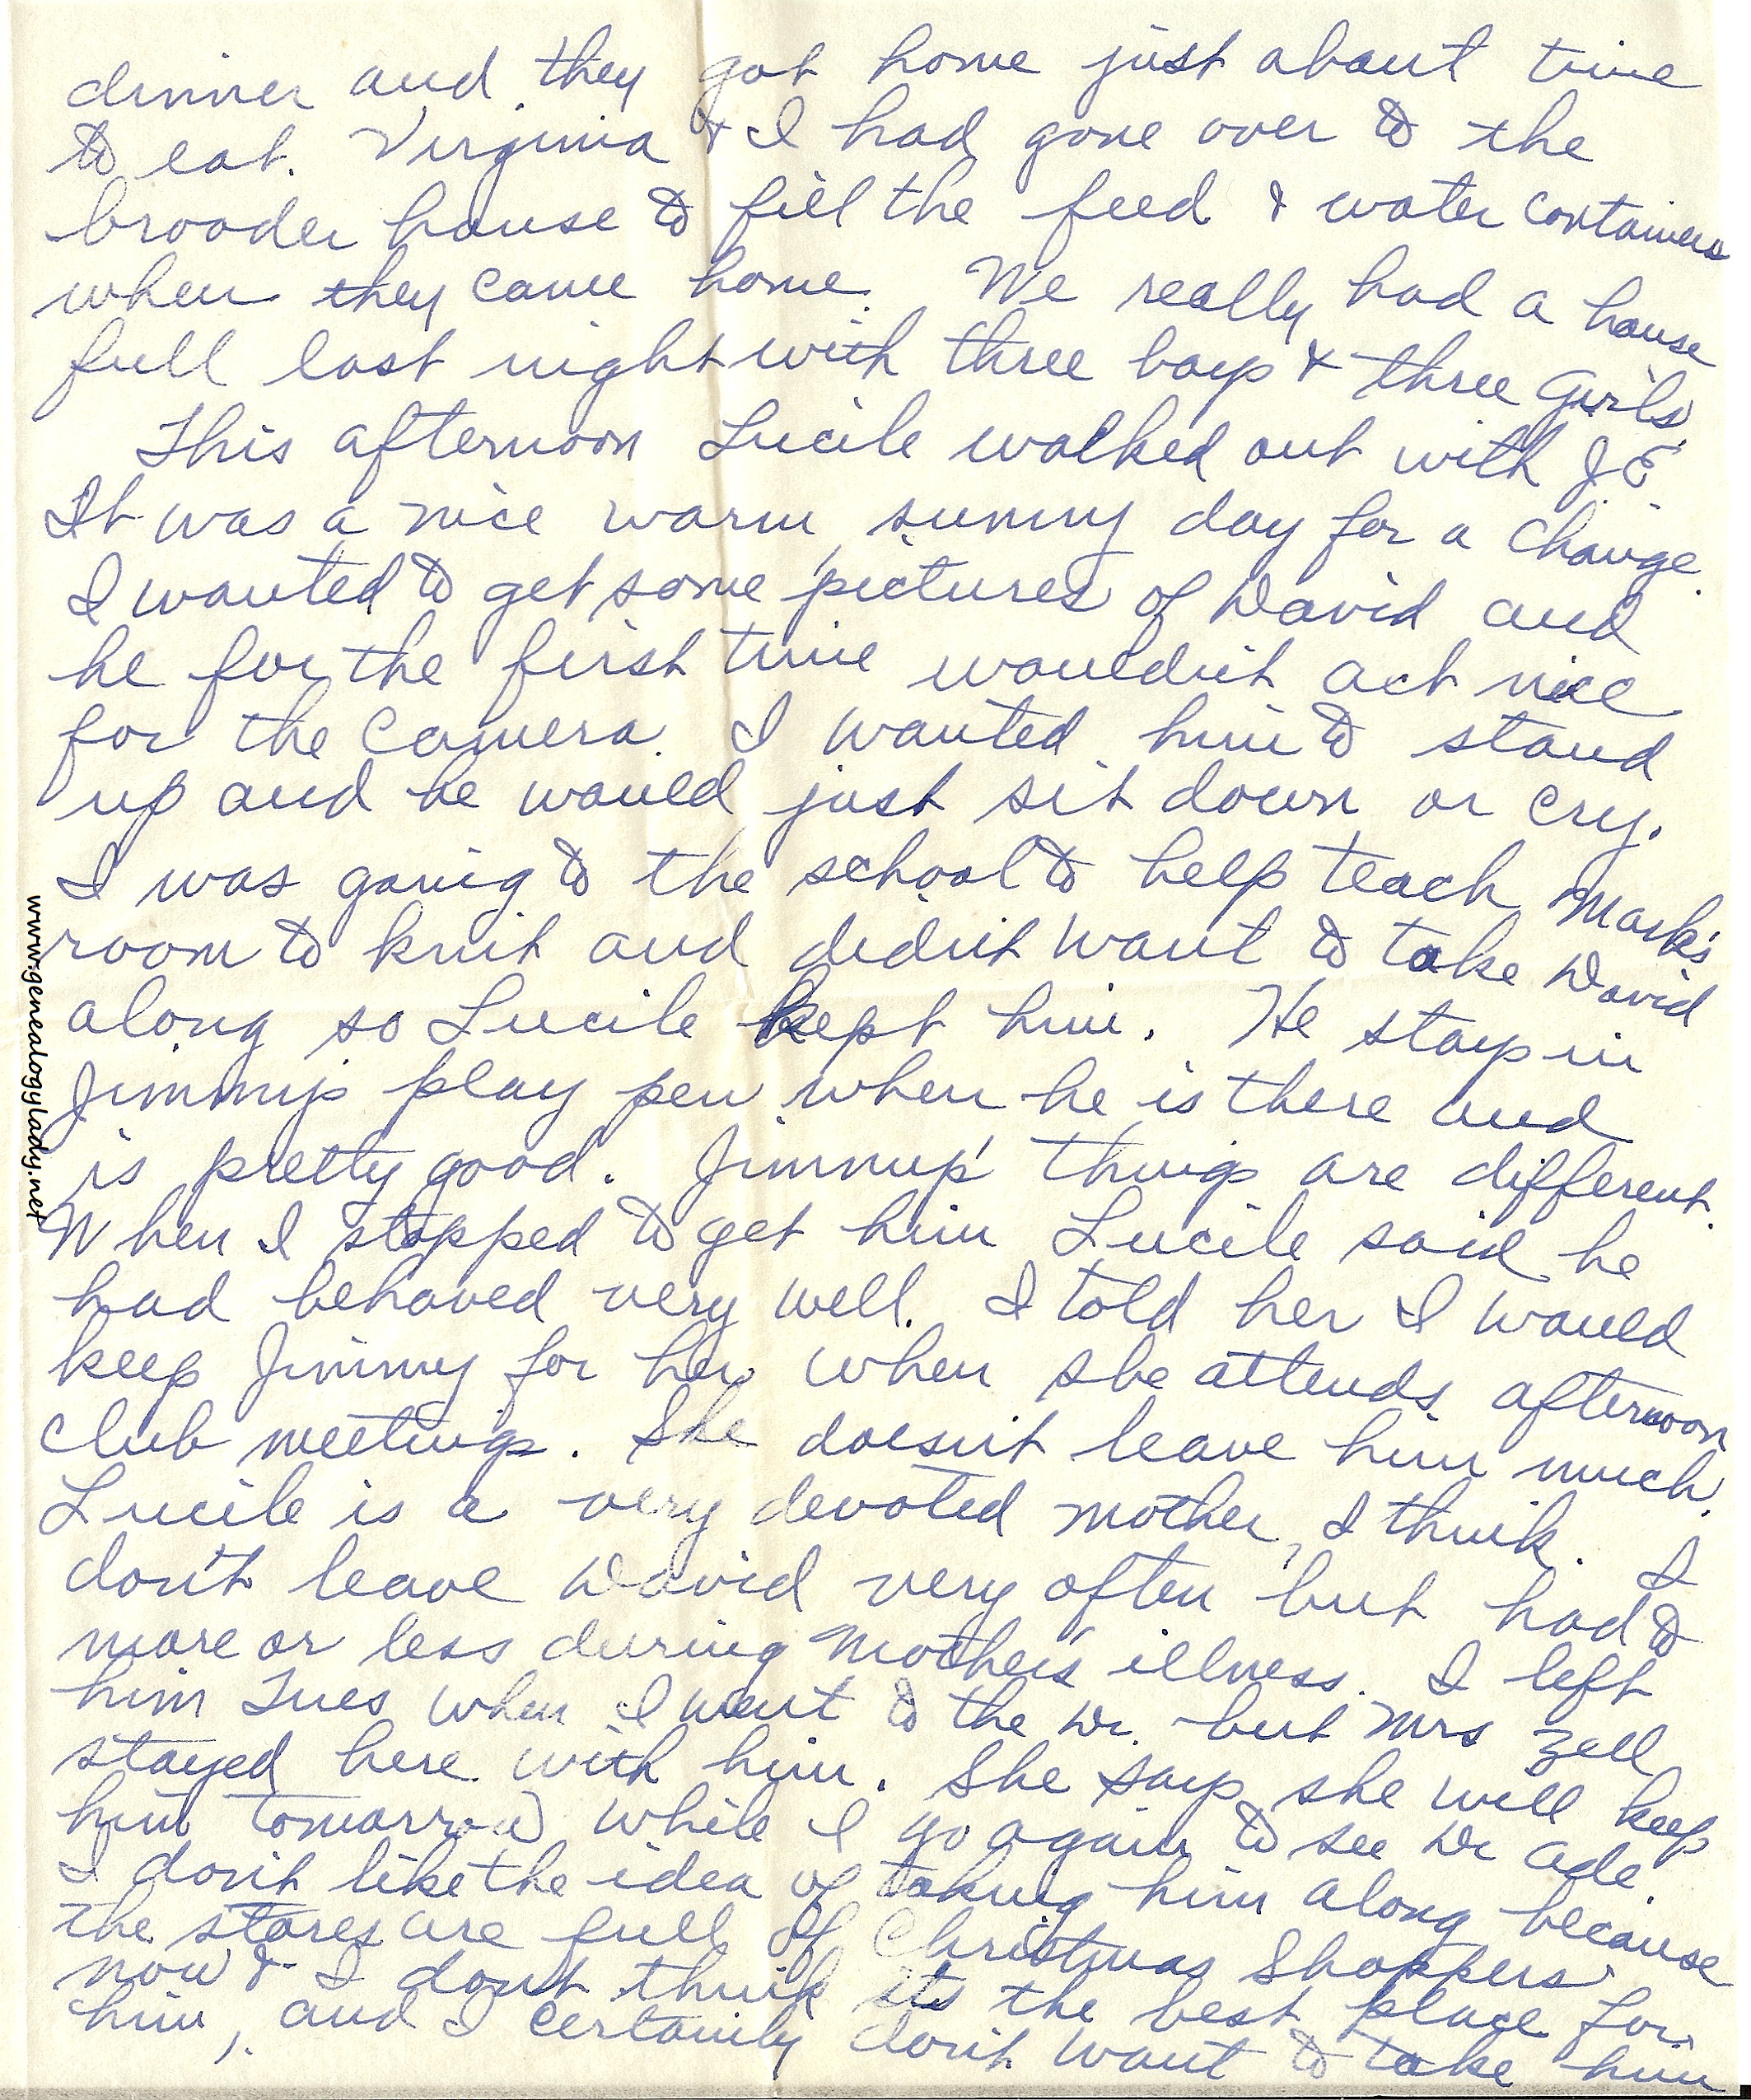 dinner and they got home just about time
to eat. Virginia & I had gone over to the
brooder house to fill the feed & water containers
when they came home. We really had a house
full last night with three boys & three girls.
This afternoon Lucile walked out with J.E.
It was a nice warm sunny day for a change.
I wanted to get some pictures of David and
he for the first time wouldn't act nice
for the camera. I wanted him to stand
up and he would just sit down or cry.
I was going to the school to help teach Mark's
room to knit and didn't want to take David
along so Lucile kept him. He stays in
Jimmy's play pen when he is there and
is pretty good. Jimmys' things are different.
When I stopped to get him Lucile said he
had behaved very well. I told her I would
keep Jimmy for her when she attends afternoon
club meetings. She doesn't leave him much.
Lucile is a very devoted mother, I think. I
don't leave David very often but had to
more or less during Mother's illness. I left
him Tues when I went to the Dr. but Mrs Zell
stayed here with him. She says she will keep
him tomorrow while I go again to see Dr Ade.
I don't like the idea of taking him along because
the stores are full of Christmas Shoppers
now & I don't think its the best place for
him, and I certainly don't want to take him
www.genealogylady.net